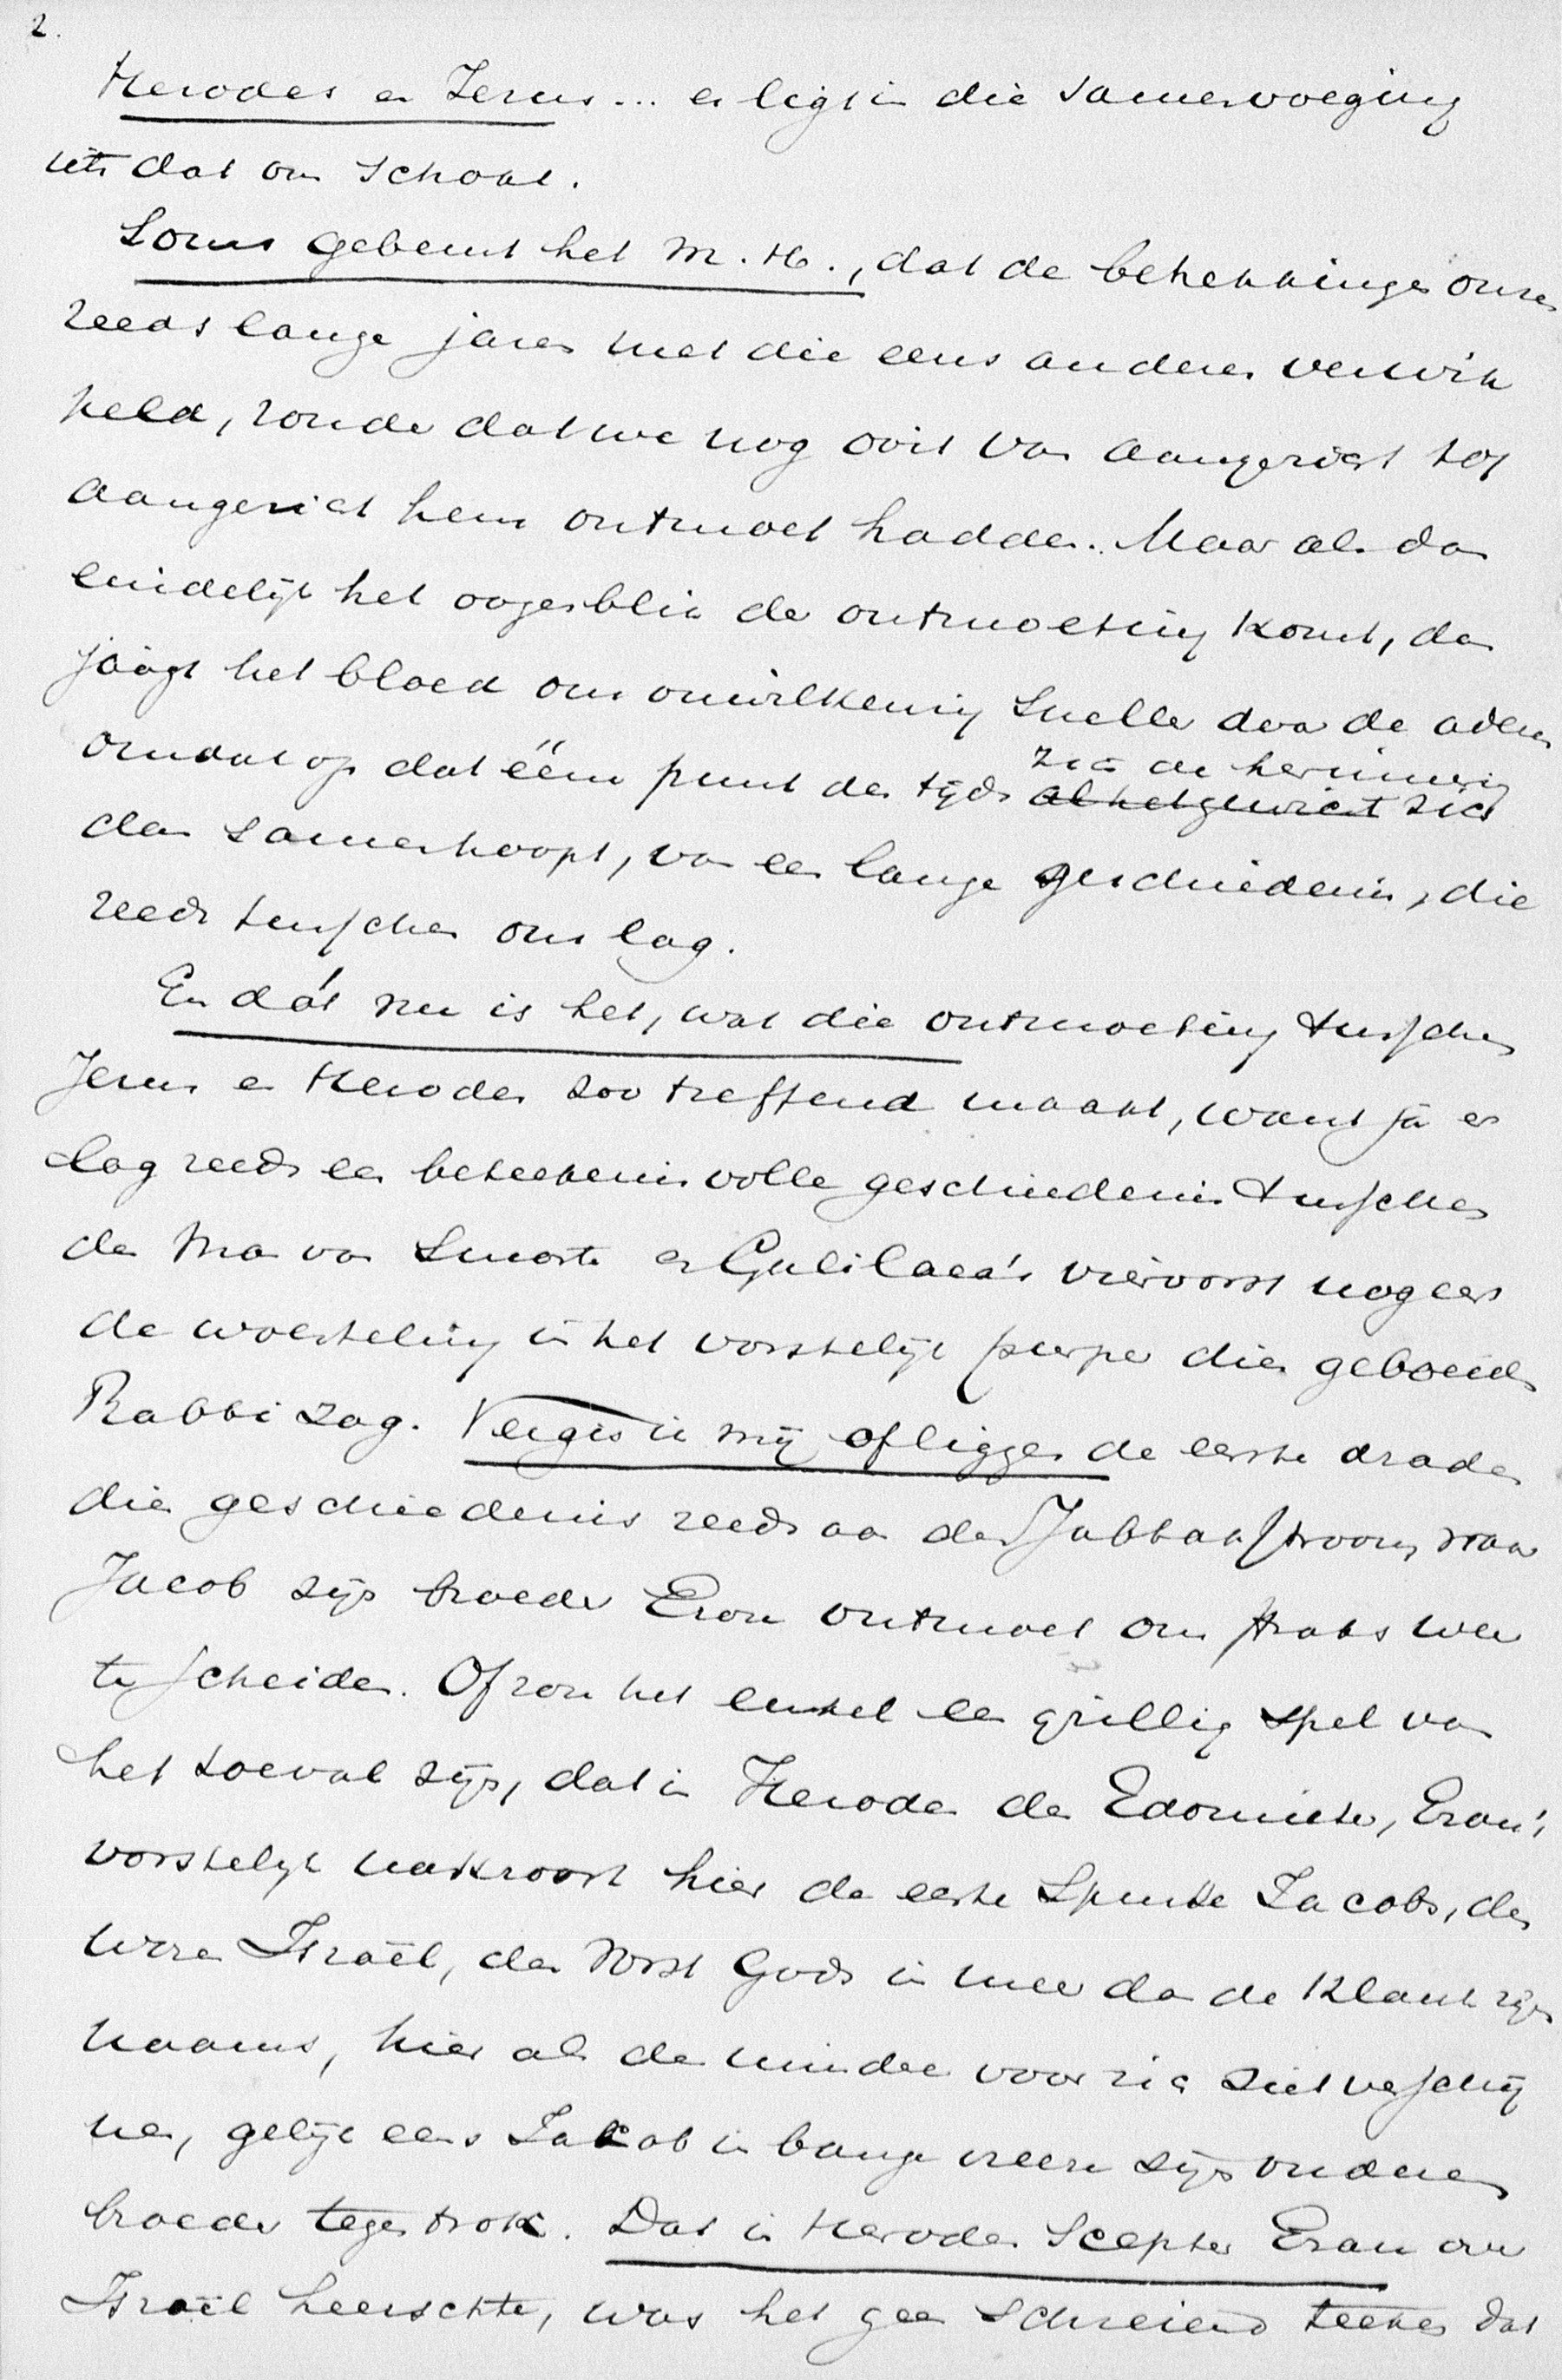 2.
Herodes en Jezus... er ligt in die samenvoeging
iets dat ons schokt.
Soms gebeurt het M. H., dat de betrekkingen onzer
reeds lange jaren met die eens anderen verwik
keld, zonder dat we nog ooit van aangezicht tot
aangezicht hem ontmoet hadden. Maar als dan
eindelijk het oogenblik der ontmoeting komt, dan
jaagt het bloed ons onwillekeurig sneller door de aderen
omdat op dat ééne punt des tijds al het gewicht zich
zich de herinnering
dan samenhoopt, van een lange geschiedenis, die
reeds tusschen ons lag.
En dát nu is het, wat die ontmoeting tusschen
Jezus en Herodes zoo treffend maakt, want ja er
lag reeds een beteekenisvolle geschiedenis tusschen
den Man van Smarte en Galilaea's viervorst nog eer
de woesteling in het vorstelijk purper dien geboeiden
Rabbi zag. Vergis ik mij of liggen de eerste draden
dier geschiedenis reeds aan den Jabbakstroom, waar
Jacob zijn broeder Ezau ontmoet om straks weer
te scheiden. Of zou het enkel een grillig spel van
het toeval zijn, dat in Herodes den Edomiet, Ezau's
vorstelijk nakroost hier de eerste Spruite Jacobs, den
waren Israël, den Vorst Gods in meer dan de klank zijns
naams, hier als de mindere voor zich ziet verschij
nen, gelijk eens Jakob in bange vreeze zijn ouderen
broeder tegentrok. Dat in Herodes Scepter Ezau over
Israël heerschte, was het geen schreiend teeken dat